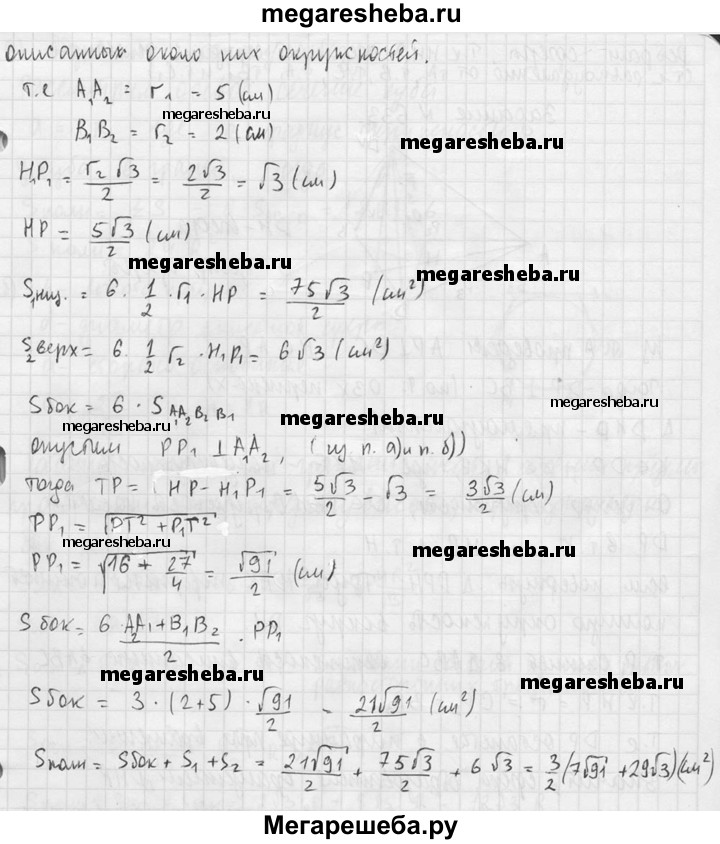 megaresheba.ru
описанных около них окружностей.
т.е A₁A₂ = r₁ = 5 (см)
megaresheba.ru
B₁B₂ = r₂ = 2 (см)
megaresheba.ru
H₁P₁ = r₂√3/2 = 2√3/2 = √3 (см)
HP = 5√3/2 (см)
megaresheba.ru
megaresheba.ru
S₁ниж. = 6 · 1/2 · r₁ · HP = 75√3/2 (см²)
S₂верх = 6 · 1/2 r₂ · H₁P₁ = 6√3 (см²)
megaresheba.ru
Sбок = 6 · S AA₂B₂B₁
megaresheba.ru
опустим PP₁ ⊥ A₁A₂, (из п. а) и п. б))
тогда TP = HP - H₁P₁ = 5√3/2 - √3 = 3√3/2 (см)
PP₁ = √(PT² + P₁T²)
megaresheba.ru
megaresheba.ru
PP₁ = √(16 + 27/4) = √91/2 (см)
Sбок = 6 · (AA₁ + B₁B₂)/2 · PP₁
megaresheba.ru
megaresheba.ru
Sбок = 3 · (2+5) · √91/2 - 21√91/2 (см²)
Sполн = Sбок + S₁ + S₂ = 21√91/2 + 75√3/2 + 6√3 = 3/2 (7√91 + 29√3) (см²)
Мегарешеба.ру